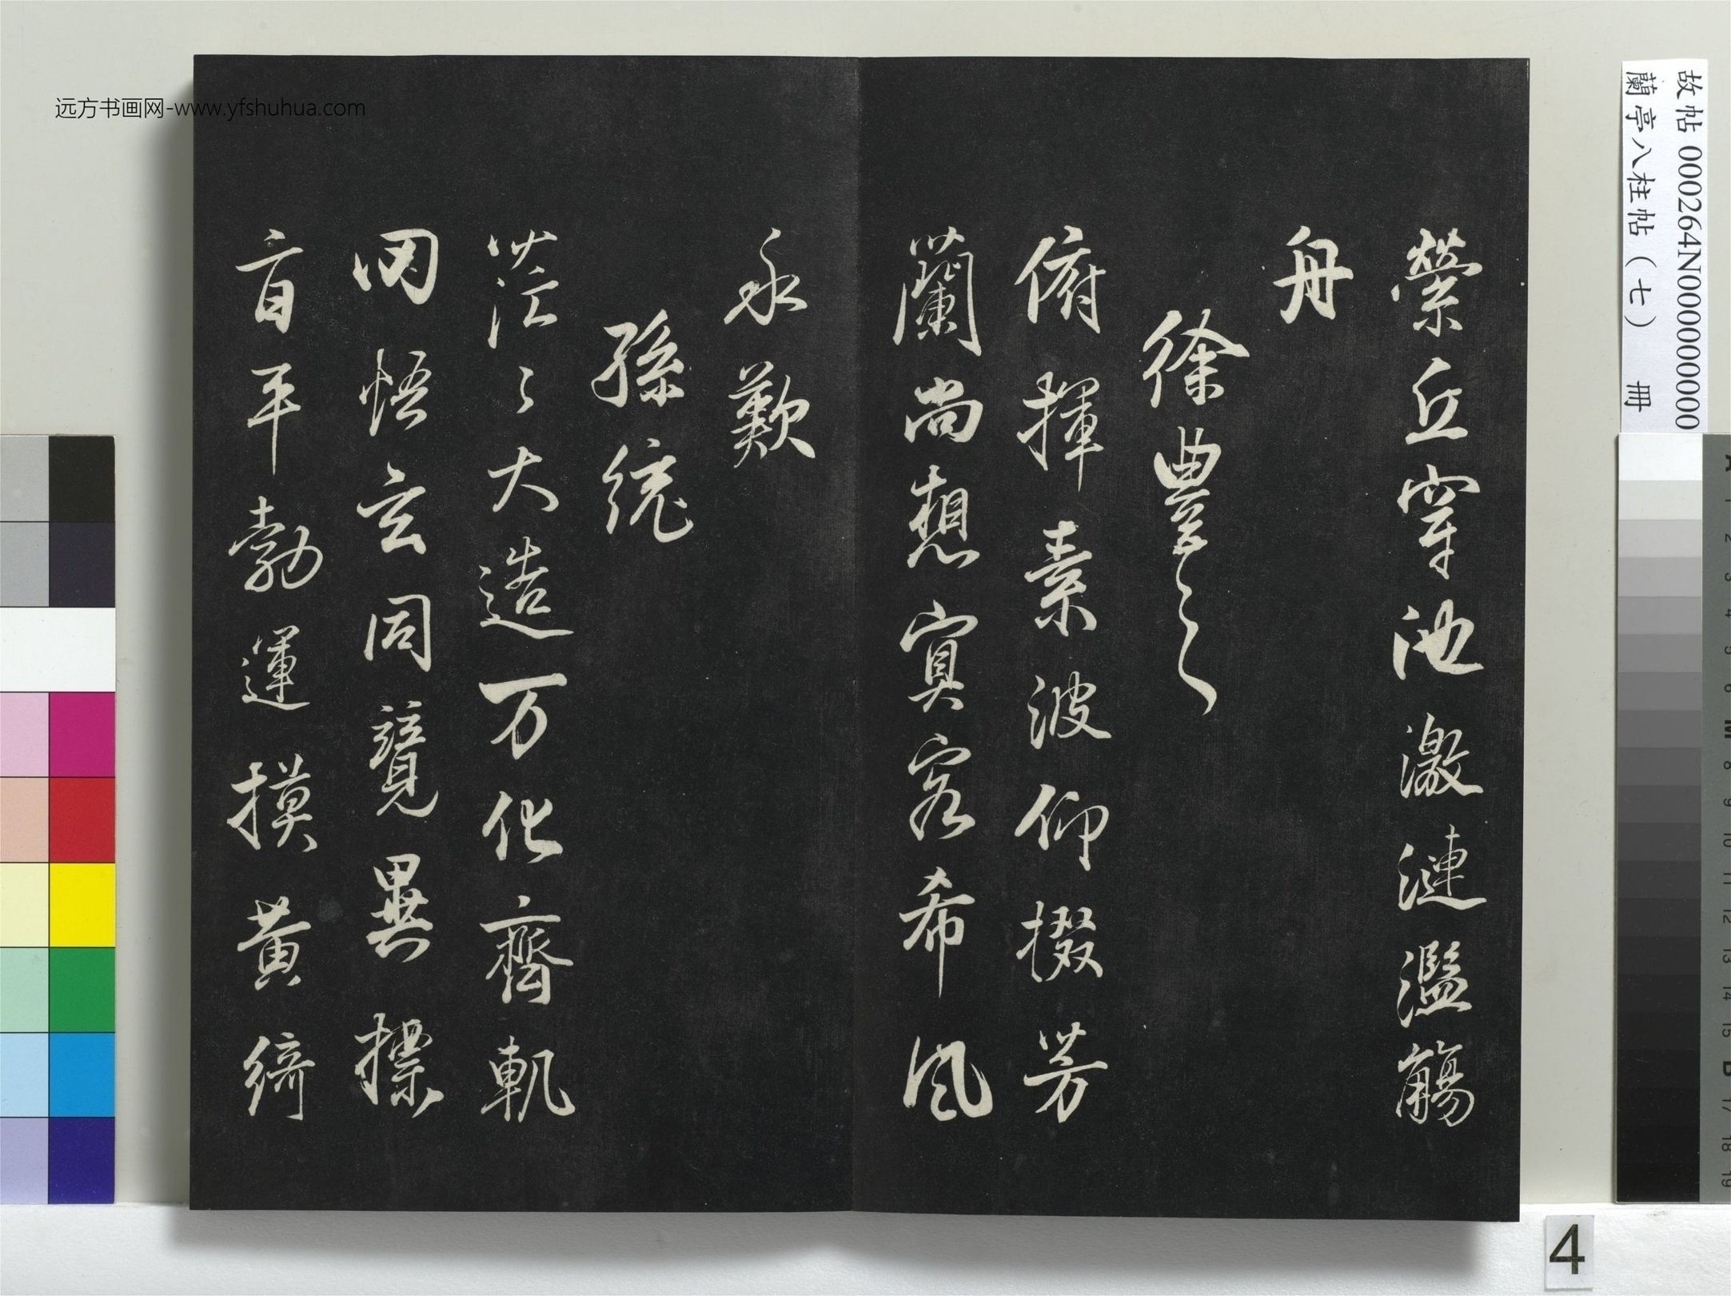 縈丘穿池激漣濫觴
舟
徐豐之
俯揮素波仰掇芳
蘭尚想冥客希風
永歎
孫統
茫〻大造万化齊軌
罔悟玄同競異摽
旨平勃運摸黃綺
远方书画网-www.yfshuhua.com
故帖 000264N000000000
蘭亭八柱帖（七） 冊
4